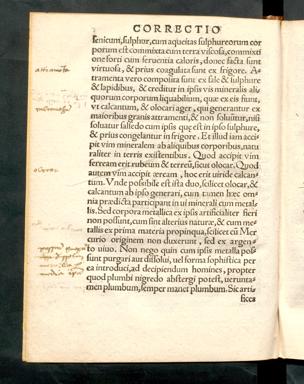 CORRECTIO
senicum, sulphur, cum aqueitas sulphureorum cor
porum est commixta cum terra viscosa, commixti
one forti cum feruentia caloris, donec facta sunt
virtuosa, & prius coagulata sunt ex frigore. A-
tramenta vero composita sunt ex sale & sulphure
& lapidibus, & creditur in ipsis vis mineralis ali
quorum corporum liquabilium, quæ ex eis fiunt,
vt calcantum, & olocari ager, qui generantur ex
maioribus granis attramenti, & non soluitur, nisi
soluatur salsedo cum ipsis quę est in ipso sulphure,
& prius congelantur in frigore. Et illud iam acci
pit vim mineralem ab aliquibus corporibus, natu
raliter in terris existentibus. Quod accipit vim
ferream erit rubeum & terreũ, sicut olocar. Quod
autem vim accipit æream, hoc erit viride calcan-
tum. Vnde possibile est ista duo, scilicet olocar, &
calcantum ab ipso generari, cum tamen hæc om-
nia prædicta participant in vi minerali cum metal-
lis. Sed corpora metallica ex ipsis artificialiter fieri
non possunt, cum sint alterius naturæ, & cum me-
tallis ex prima materia propinqua, scilicet cũ Mer
curio originem non duxerunt, sed ex argen-
to uiuo. Non nego quin cum ipsis metalla pos-
sunt purgari aut dissolui, uel forma sophistica per
ea introduci, ad decipiendum homines, propter
quod plumbi nigredo abstergi potest, uerunta-
men plumbum, semper manet plumbum. Sic artis
fices